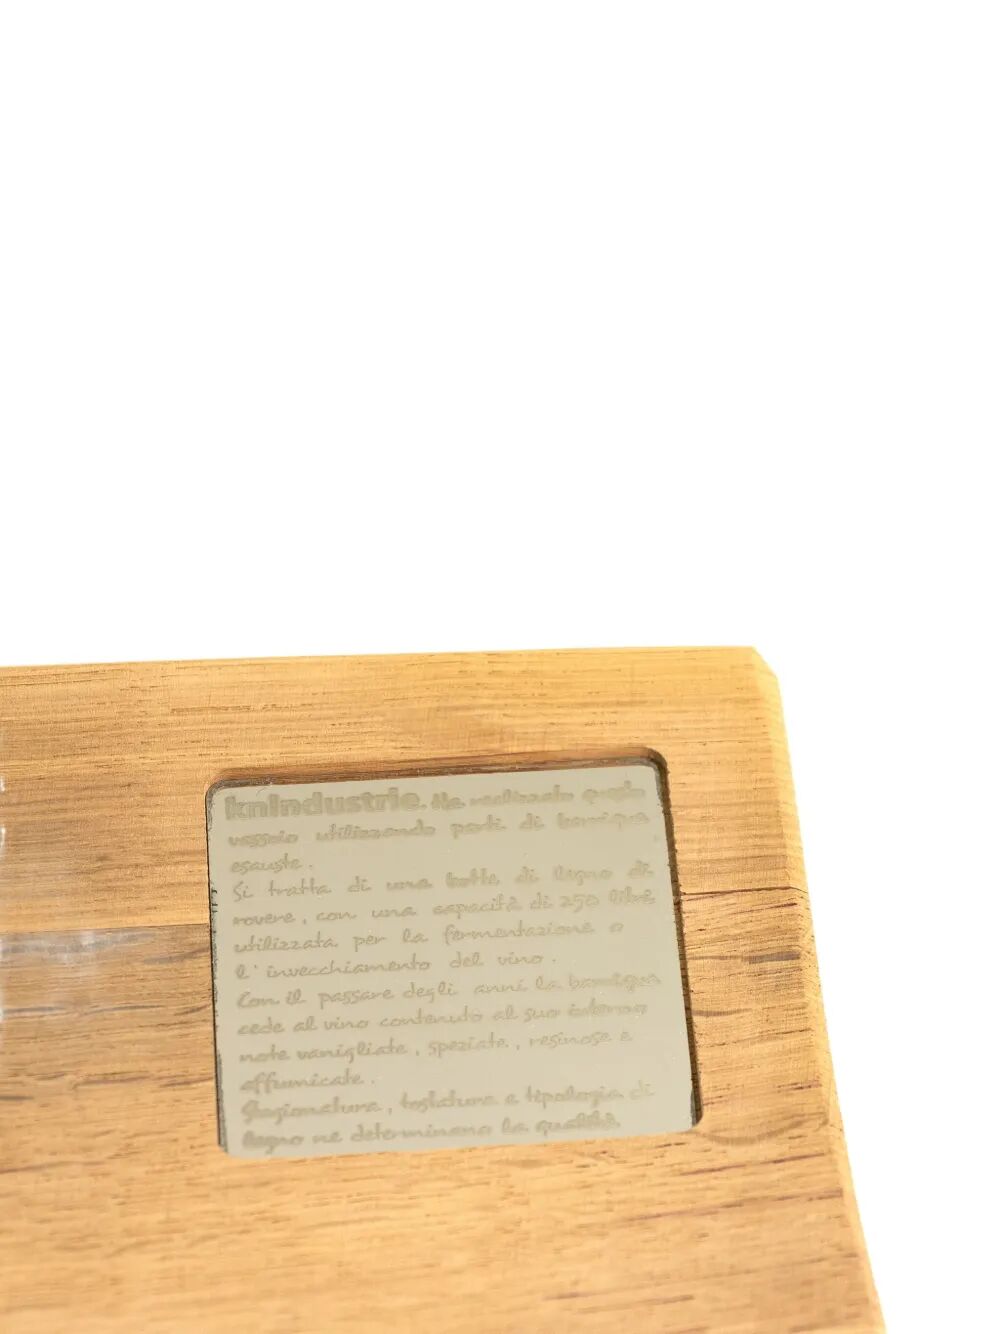 knIndustrie. Ha realizzato questo
vassoio utilizzando parti di barrique
esauste.
Si tratta di una botte di legno di
rovere, con una capacità di 250 libri,
utilizzata per la fermentazione o
l'invecchiamento del vino.
Con il passare degli anni la barrique
cede al vino contenuto al suo interno
note vanigliate, speziate, resinose e
affumicate.
Stagionatura, tostatura e tipologia di
legno ne determinano la qualità